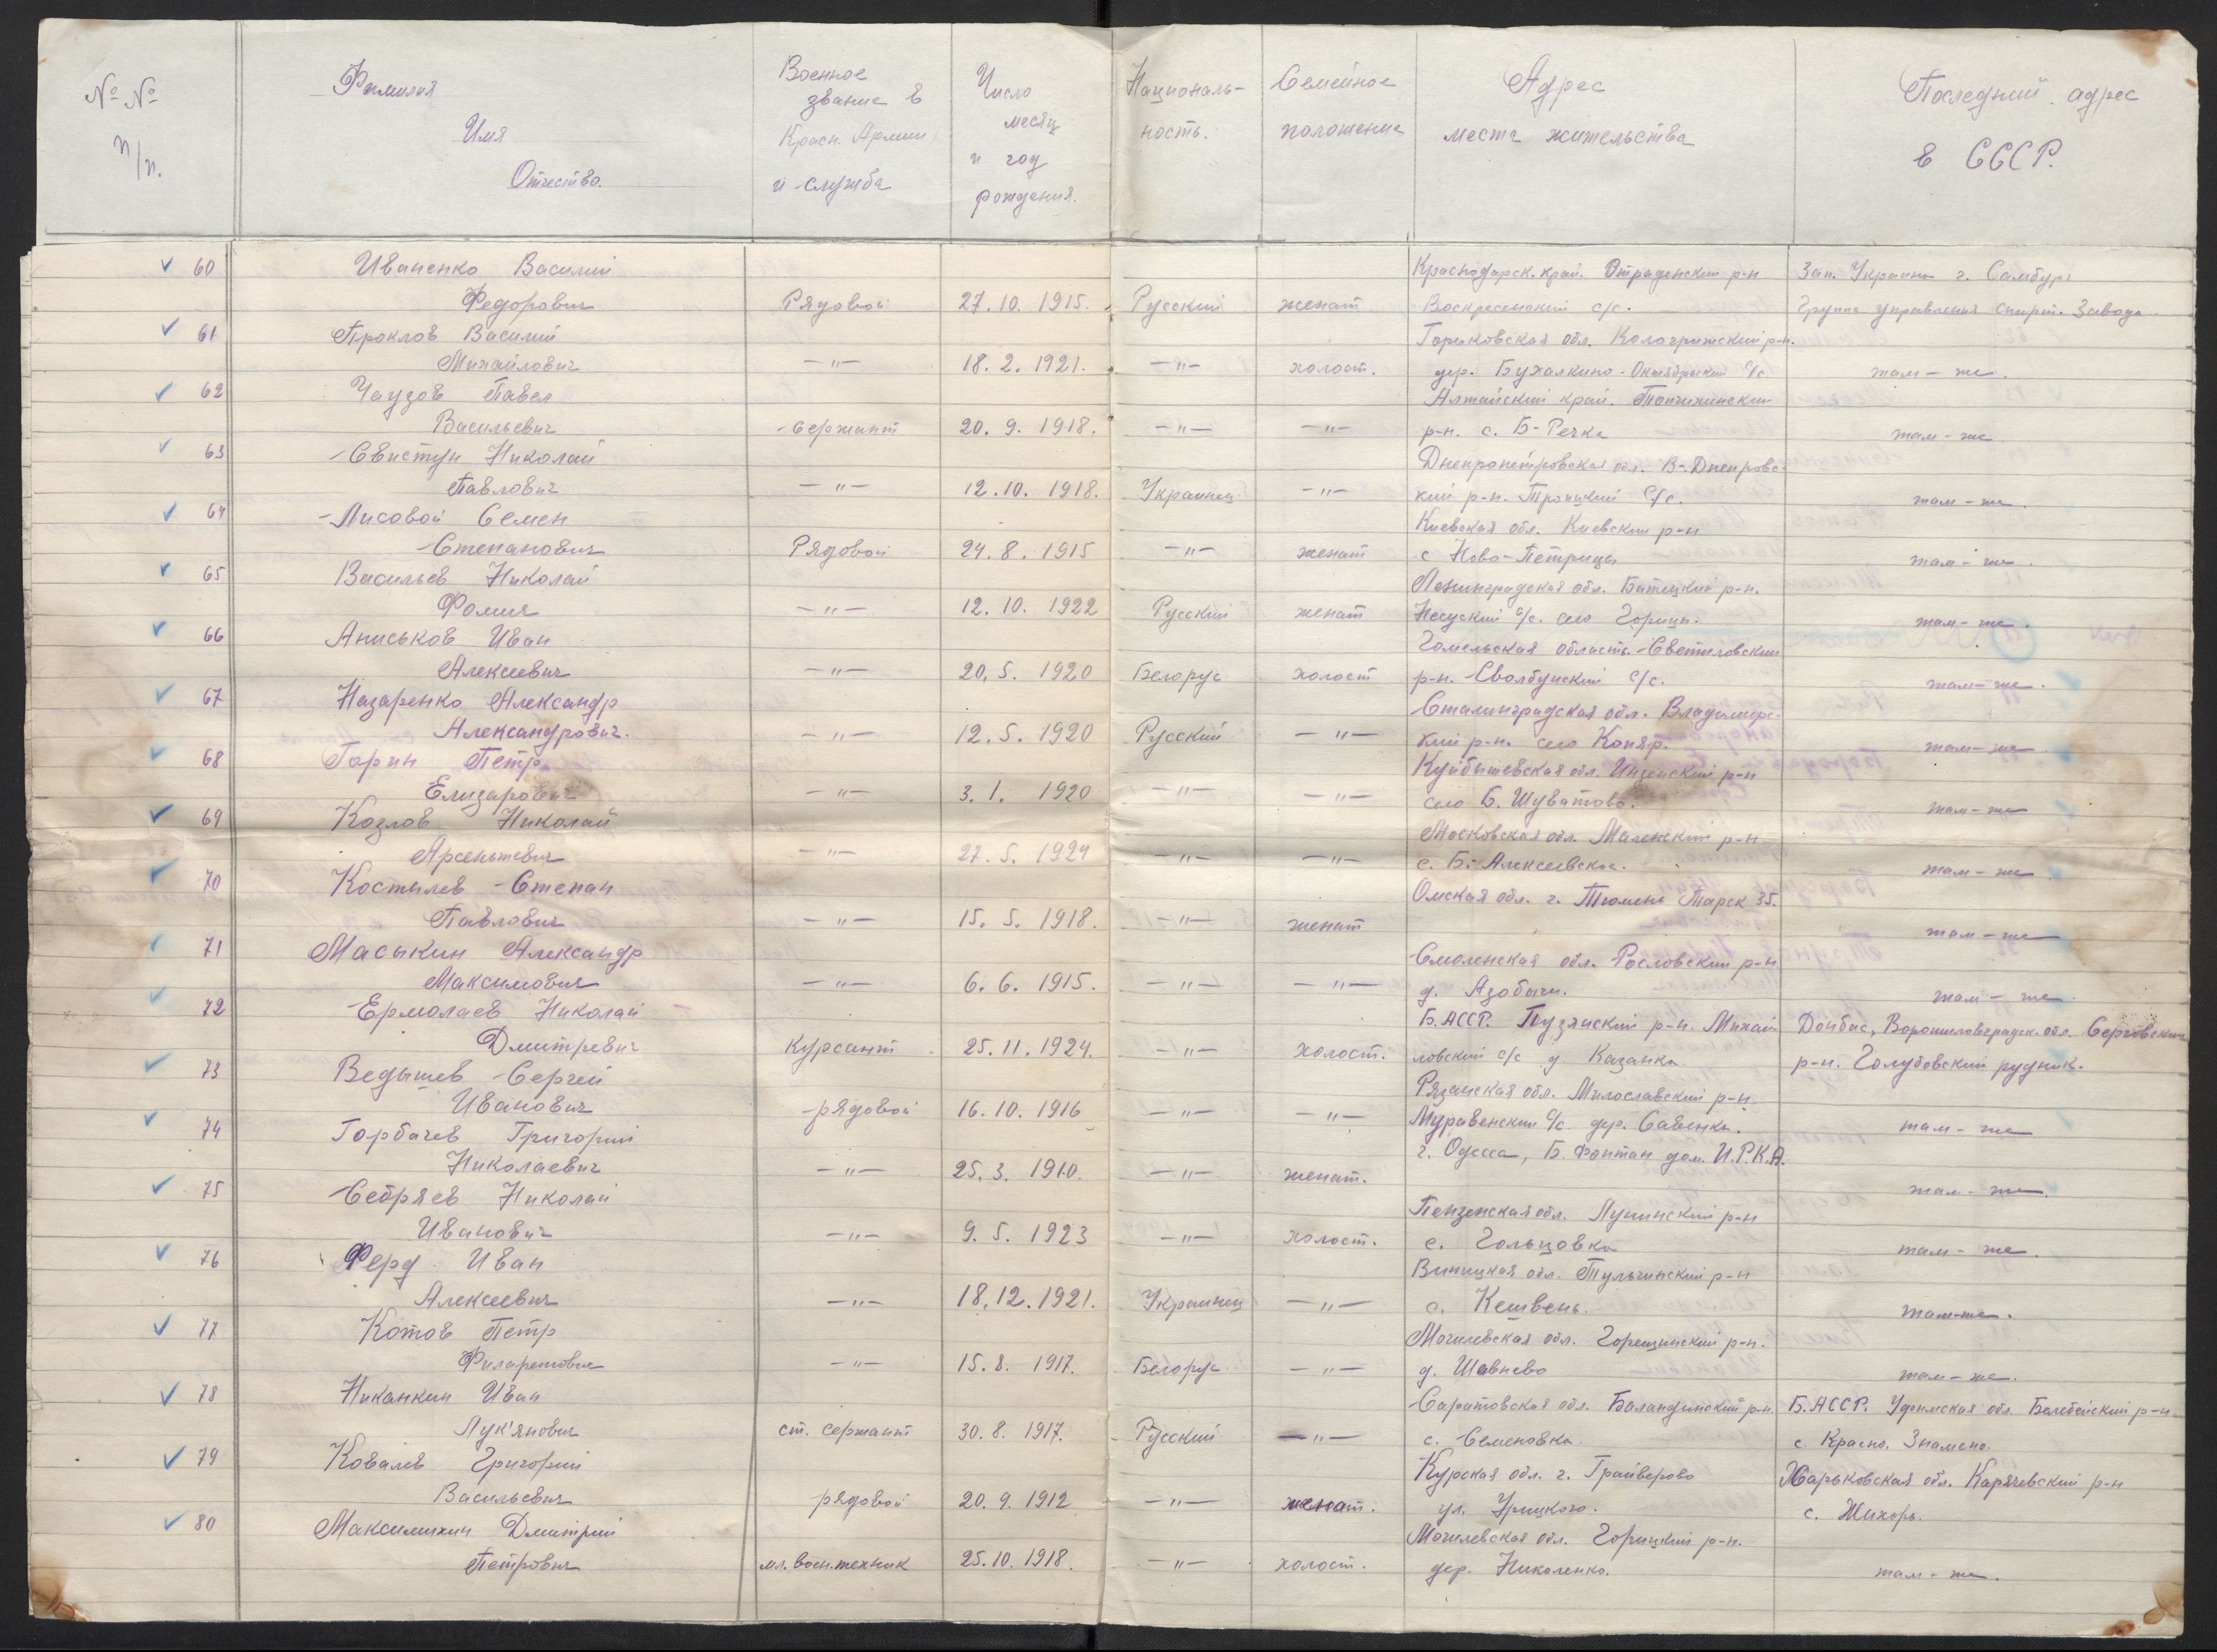 № № п/п. Фамилия Имя Отчество. Военное звание в Красн. Армии и служба Число месяц и год рождения. Националь-ность. Семейное положение Адрес места жительства Последний адрес в СССР.
60 Иваненко Василий Краснодарск. край. Отраденский р-н Зап. Украина г. Самбург
Федорович Рядовой 27. 10. 1915. Русский женат Воскресенский с/с. Группа управления спирт. Завода
61 Проклов Василий Горьковская обл. Кологривский р-н.
Михайлович —"— 18. 2. 1921. —"— холост. дер. Бухалкино - Октябрьский с/с там - же.
62 Чаузов Павел Алтайский край. Топчихинский
Васильевич Сержант 20. 9. 1918. —"— —"— р-н. с. Б-Речка там - же
63 Свистун Николай Днепропетровская обл. В-Днепровс-
Павлович —"— 12. 10. 1918. Украинец —"— кий р-н. Троицкий с/с. там - же.
64 Лисовой Семен Киевская обл. Киевский р-н
Степанович Рядовой 24. 8. 1915 —"— женат с Ново-Петрицы там - же.
65 Васильев Николай Ленинградская обл. Батецкий р-н.
Фомич —"— 12. 10. 1922 Русский женат с/с. село Горицы. там - же.
66 Аниськов Иван Гомельская область. Светиловский
Алексеевич —"— 20. 5. 1920 Белорус холост р-н. с/с. там - же.
67 Назаренко Александр Сталинградская обл. Владимирс-
Александрович. —"— 12. 5. 1920 Русский —"— кий р-н. село Копяр. там - же
68 Гарин Петр Куйбышевская обл. Инзенский р-н
Елизарович —"— 3. 1. 1920 —"— —"— село Б. Шуватово. там - же
69 Козлов Николай Московская обл. р-н
Арсентьевич —"— 27. 5. 1924 —"— —"— с. Б. Алексеевское. там - же
70 Костылев Степан Омская обл. г. Тюмень Тарск 35.
Павлович —"— 15. 5. 1918. —"— женат там - же
71 Маськин Александр Смоленская обл. Рословский р-н
Максимович —"— 6. 6. 1915. —"— —"— д. Азобичи. там - же.
72 Ермолаев Николай Б.АССР. р-н. Михай Донбас, Ворошиловградск. обл. Серговский
Дмитревич Курсант 25. 11. 1924. —"— холост. ловский с/с д. Казанка р-н. Голубовский рудник.
73 Ведышев Сергей Рязанская обл. Милославский р-н.
Иванович рядовой 16. 10. 1916 —"— —"— Муравенский с/с. дер. Савенки. там - же
74 Горбачев Григорий г. Одесса, Б. Фонтан дом. И.Р.К.А.
Николаевич —"— 25. 3. 1910. —"— женат. там - же.
75 Себряев Николай Пензенская обл. Лунинский р-н
Иванович —"— 9. 5. 1923 —"— холост. с. Гольцовка там - же.
76 Ферд Иван Виницкая обл. Тульчинский р-н
Алексеевич —"— 18. 12. 1921. Украинец —"— с. Кешвень. там-же.
77 Котов Петр Могилевская обл. р-н.
Филаретович —"— 15. 8. 1917. Белорус —"— д. Шавнево там - же.
78 Никанкин Иван Саратовская обл. Баландинский р-н. Б.АССР. Уфимская обл. Белебейский р-н
Лук'янович ст. сержант 30. 8. 1917. Русский —"— с. Семеновка с. Красно. Знамено.
79 Ковалев Григорий Курская обл. г. Грайверово Харьковская обл. Карачевский р-н
Васильевич рядовой 20. 9. 1912 —"— женат. ул. Урицкого. с. Жихорь.
80 Максимихин Дмитрий Могилевская обл. Горицкий р-н.
Петрович мл. воен.техник 25. 10. 1918. —"— холост. дер. Николенко. там - же.